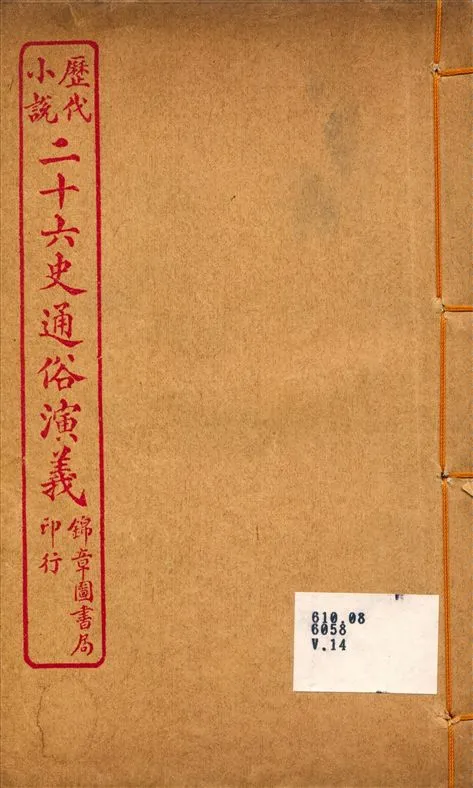 歷代
小說
二十六史通俗演義
錦章圖書局
印行
610.08
6058
V.14